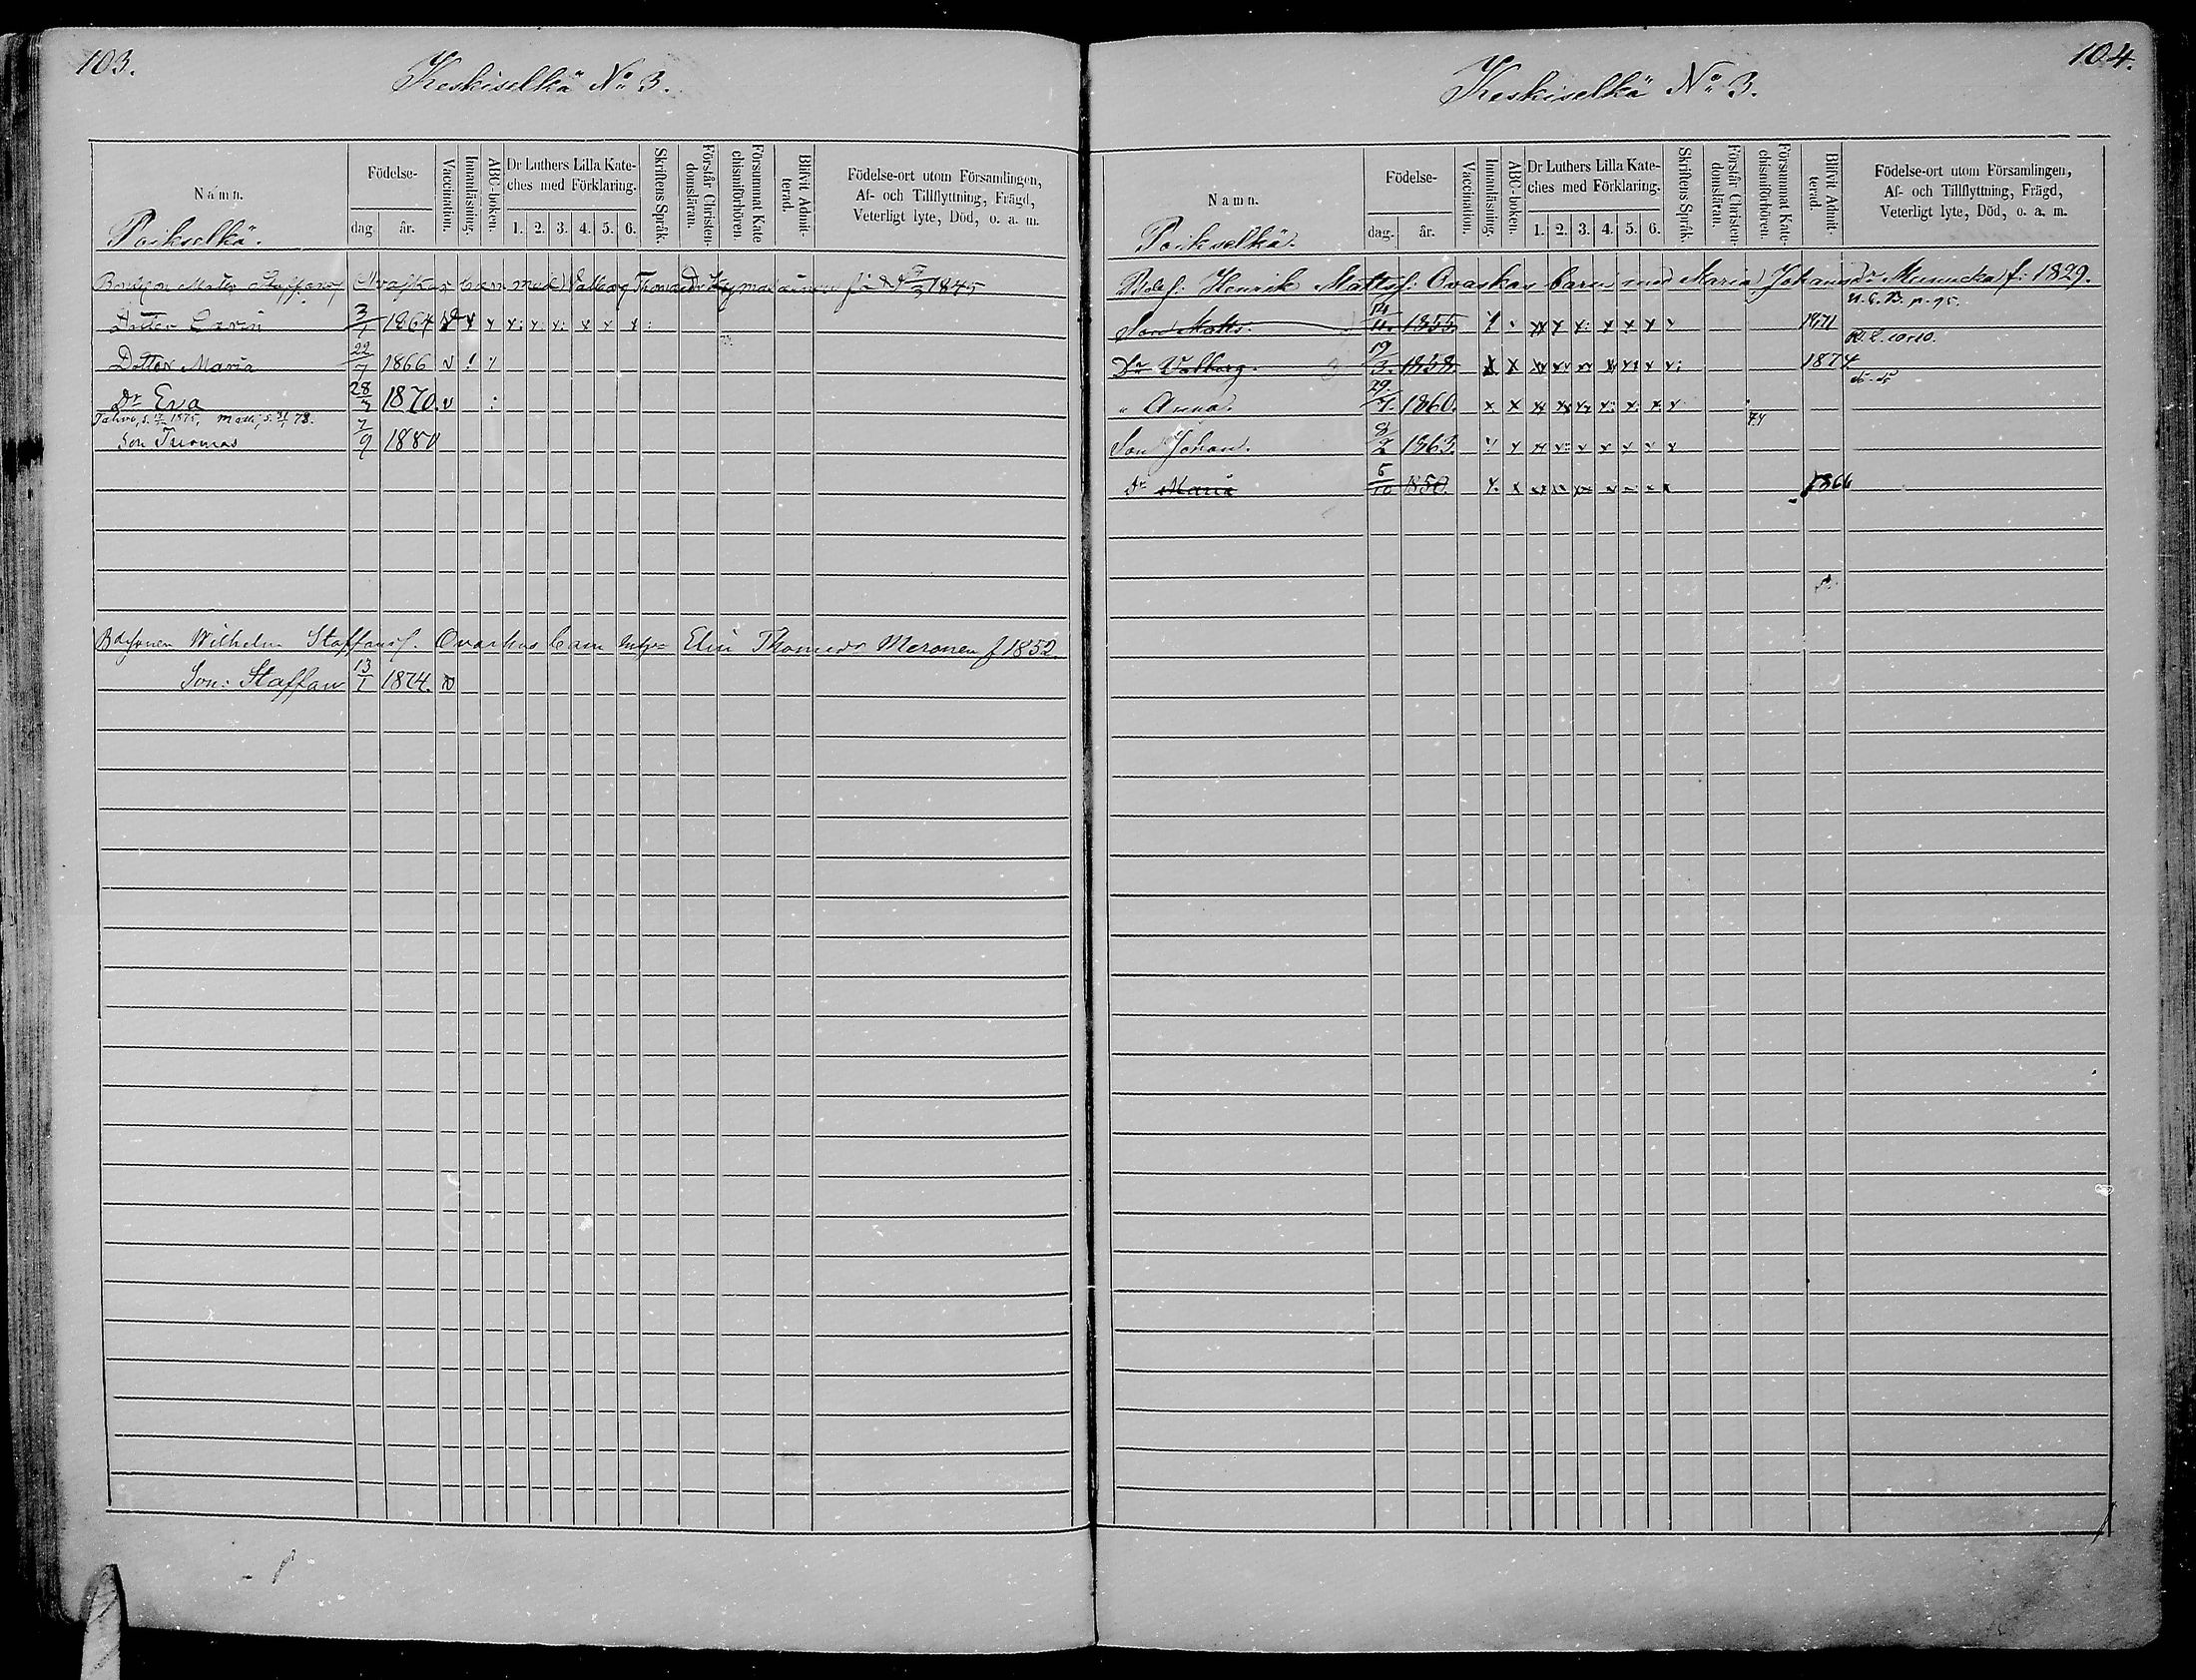 103.
Keskiselkä No 3.
Namn.
Födelse-
dag
år.
Vaccination.
Innanläsning.
ABC-boken.
Dr Luthers Lilla Kate-
ches med Förklaring.
1. 2. 3. 4. 5. 6.
Skriftens Språk.
Förstår Christen-
domsläran.
Försummat Kate
chismiförhören.
Blifvit Admit-
terad.
Födelse-ort utom Församlingen,
Af- och Tillflyttning, Frägd,
Veterligt lyte, Död, o. a. m.
Poikselkä.
Mats Staffansf Ovaskas barn med Valborg Thomasdr 1845
Dotter Carin 3/1 1864
Dotter Maria 22/7 1866 v
Dr Eva 28/3 1870. v
1875, Matti, s. 78.
Son Thomas 7/9 1880
Wilhelm Staffansf. Ovaskas barn Elin Thomasdr Meronen f 1852.
Son: Staffan 13/1 1874. v
104.
Keskiselkä No 3.
Namn.
Födelse-
dag.
år.
Vaccination.
Innanläsning.
ABC-boken.
Dr Luthers Lilla Kate-
ches med Förklaring.
1. 2. 3. 4. 5. 6.
Skriftens Språk.
Förstår Christen-
domsläran.
Försummat Kate-
chismiförhören.
Blifvit Admit-
terad.
Födelse-ort utom Församlingen,
Af- och Tillflyttning, Frägd,
Veterligt lyte, Död, o. a. m.
Poikselkä.
Henrik Mattsf: Ovaskas barn med Maria Johansdr Munucka f: 1829.
Son Matts. 14/11. 1855 1871 p. 95.
Dr Valborg. 19/3. 1858 1874
" Anna. 29/7. 1860. 74
Son Johan. 8/2 1863.
Dr Maria 5/10 1850. 1866